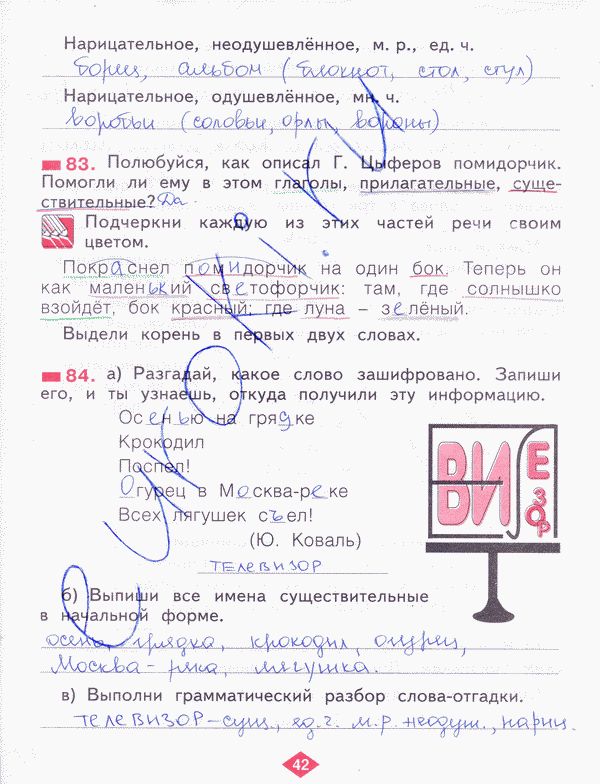 Нарицательное, неодушевлённое, м. р., ед. ч.
борец, альбом (блокнот, стол, стул)
Нарицательное, одушевлённое, мн. ч.
воробьи (соловьи, орлы, вороны)
83. Полюбуйся, как описал Г. Цыферов помидорчик.
Помогли ли ему в этом глаголы, прилагательные, суще-
ствительные? Да.
Подчеркни каждую из этих частей речи своим
цветом.
Покраснел помидорчик на один бок. Теперь он
как маленький светофорчик: там, где солнышко
взойдёт, бок красный; где луна – зелёный.
Выдели корень в первых двух словах.
84. а) Разгадай, какое слово зашифровано. Запиши
его, и ты узнаешь, откуда получили эту информацию.
Осенью на грядке
Крокодил
Поспел!
Огурец в Москва-реке
Всех лягушек съел!
(Ю. Коваль)
ВИ
Е
ЗОР
ТЕЛЕВИЗОР
б) Выпиши все имена существительные
в начальной форме.
осень, грядка, крокодил, огурец,
Москва-река, лягушка.
в) Выполни грамматический разбор слова-отгадки.
ТЕЛЕВИЗОР – сущ., ед.ч. м.р. неодуш., нариц.
42
eurokki.ru